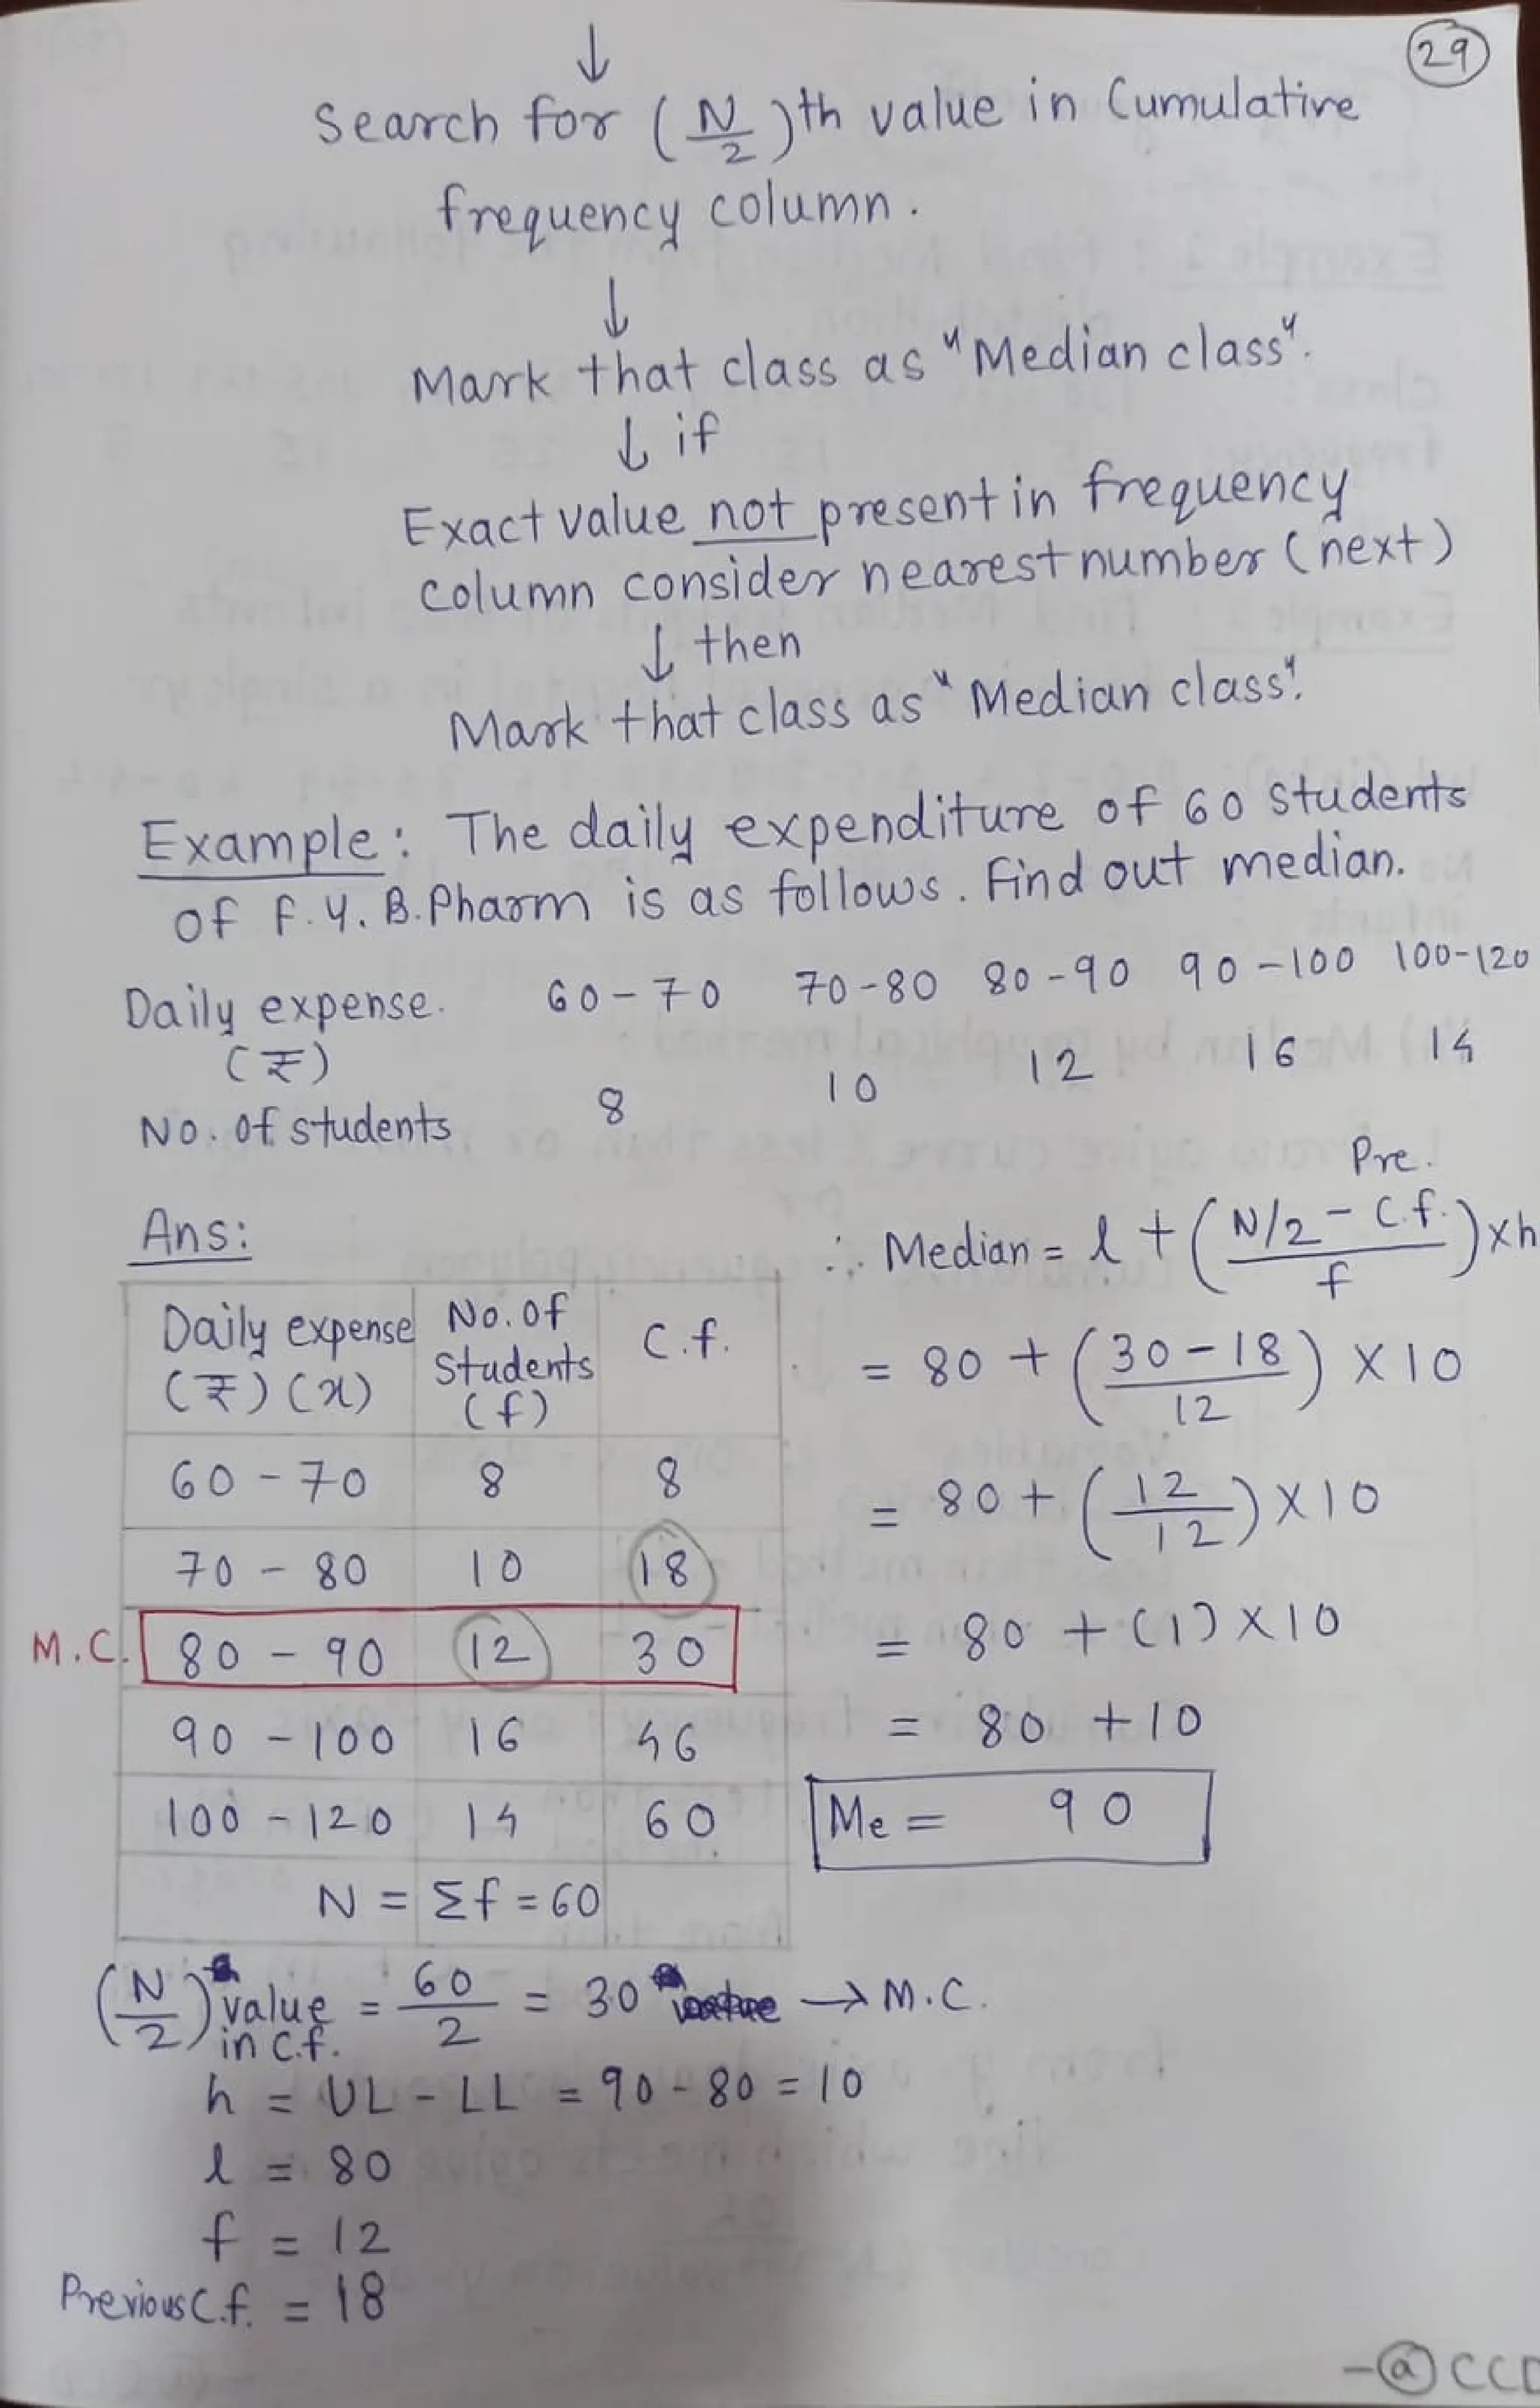 29
↓
Search for (N/2)th value in Cumulative
frequency column.
↓
Mark that class as "Median class".
↓ if
Exact value not present in frequency
column consider nearest number (next)
↓ then
Mark that class as "Median class".
Example: The daily expenditure of 60 students
of F.Y. B.Pharm is as follows. Find out median.
Daily expense. 60-70 70-80 80-90 90-100 100-120
(₹)
No. of students 8 10 12 16 14
Ans:
Daily expense (₹) (x) No. of Students (f) C.f.
60-70 8 8
70-80 10 18
M.C. 80-90 12 30
90-100 16 46
100-120 14 60
N = Σf = 60
Pre.
∴ Median = l + (N/2 - C.f. / f) x h
= 80 + (30-18 / 12) x 10
= 80 + (12 / 12) x 10
= 80 + (1) x 10
= 80 + 10
Me = 90
(N/2) value in C.f. = 60/2 = 30 → M.C.
h = UL - LL = 90 - 80 = 10
l = 80
f = 12
Previous C.f. = 18
-@CCD